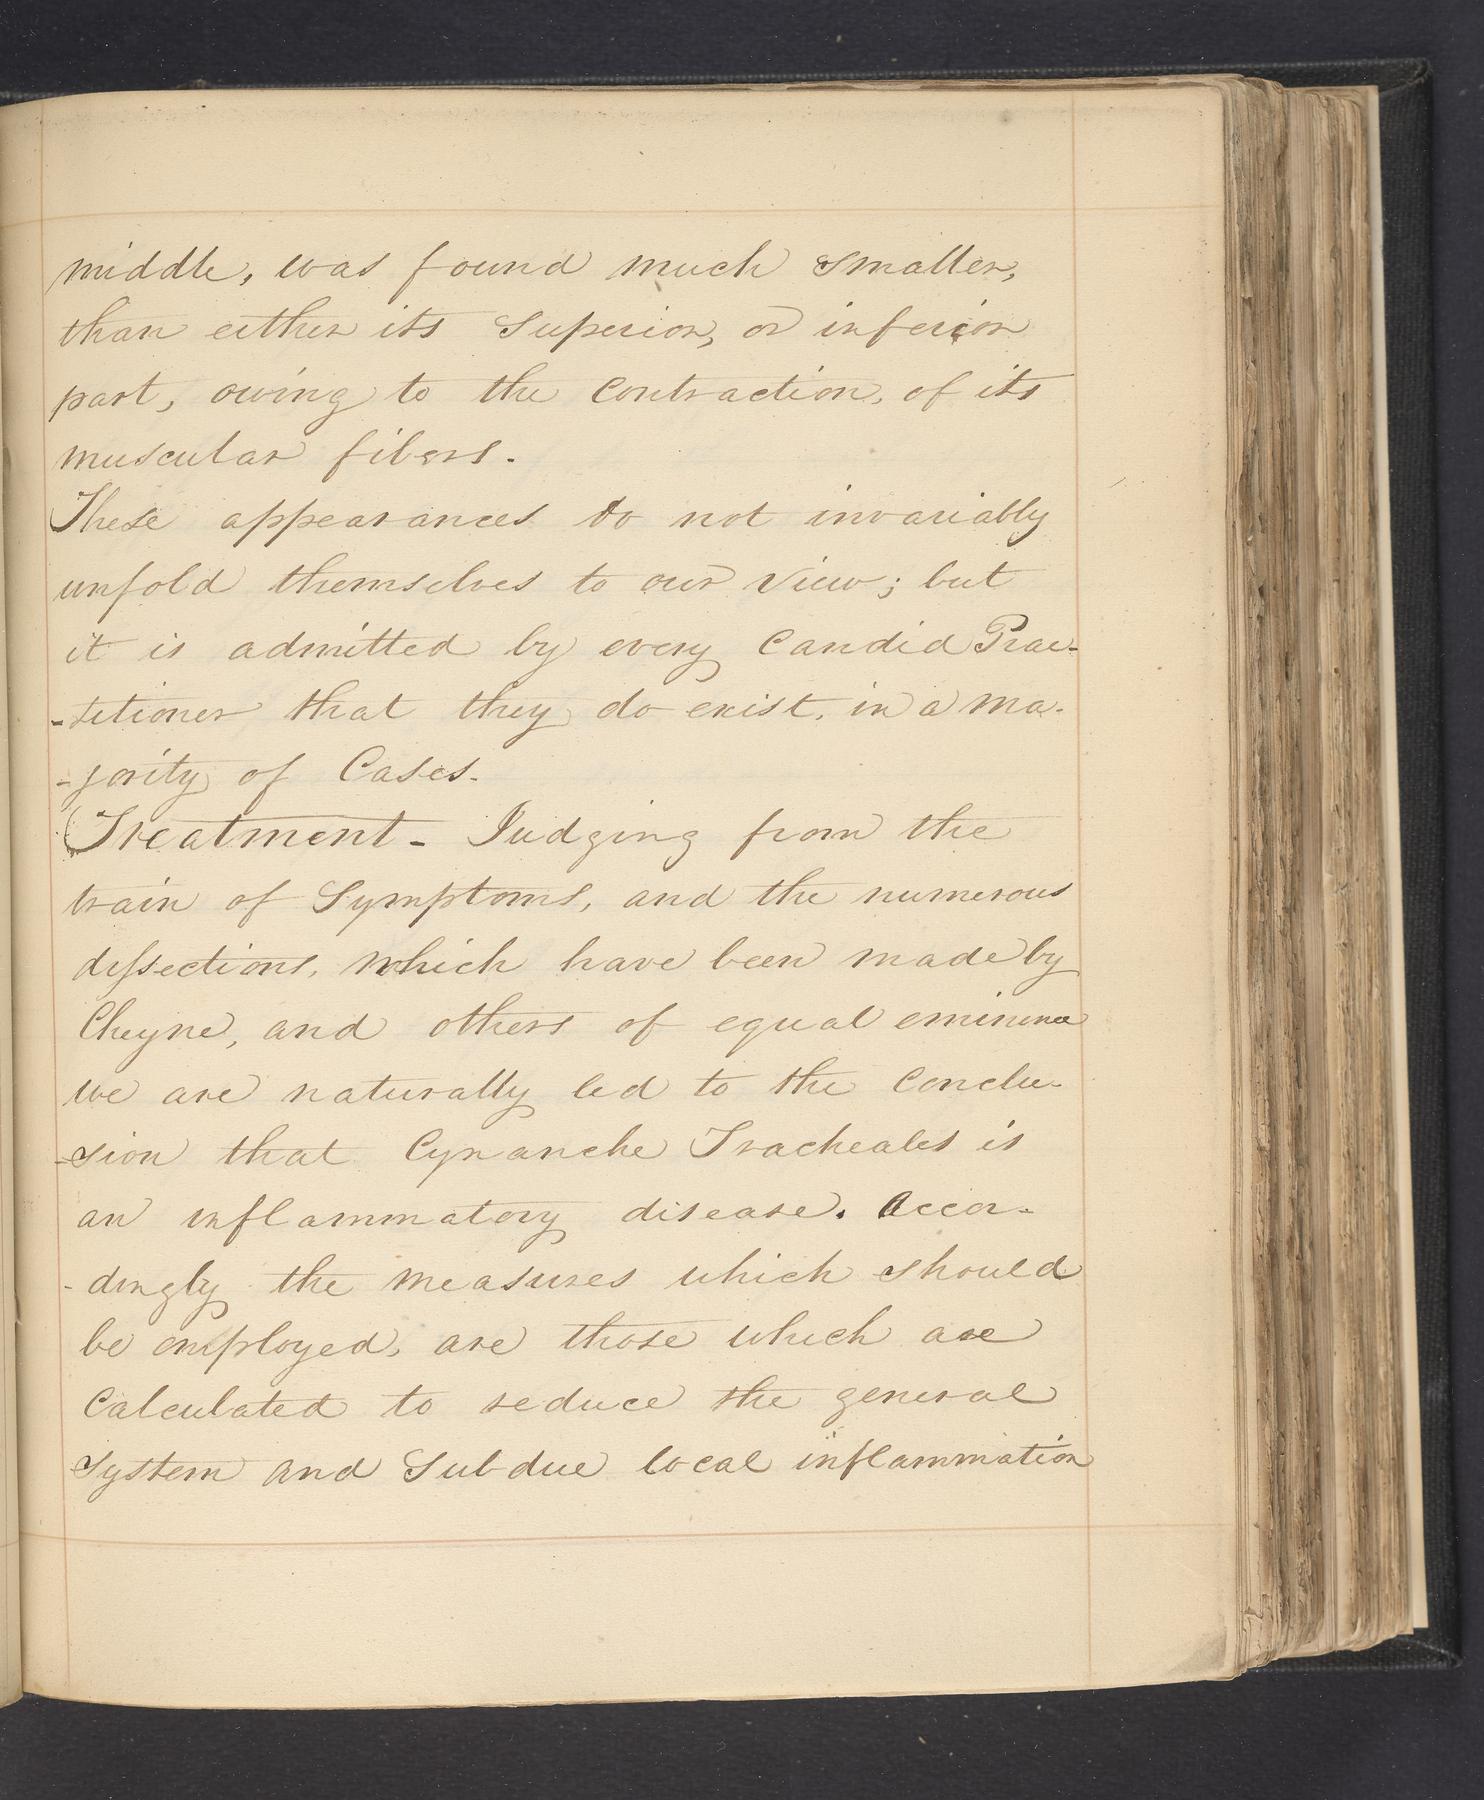 middle, was found much smaller,
than either its Superior, or inferior
part, owing to the Contraction, of its
muscular fibers.
These appearances do not invariably
unfold themselves to our view; but
it is admitted by every Candid Prac-
-titioner that they do exist, in a ma-
-jority of Cases.
Treatment - Judging from the
train of Symptoms, and the numerous
dissections, which have been made by
Cheyne, and others of equal eminence
we are naturally led to the conclu-
-sion that Cynanche Trachealis is
an inflammatory disease. Accor-
-dingly the measures which should
be employed, are those which are
Calculated to reduce the general
System and Subdue local inflammation